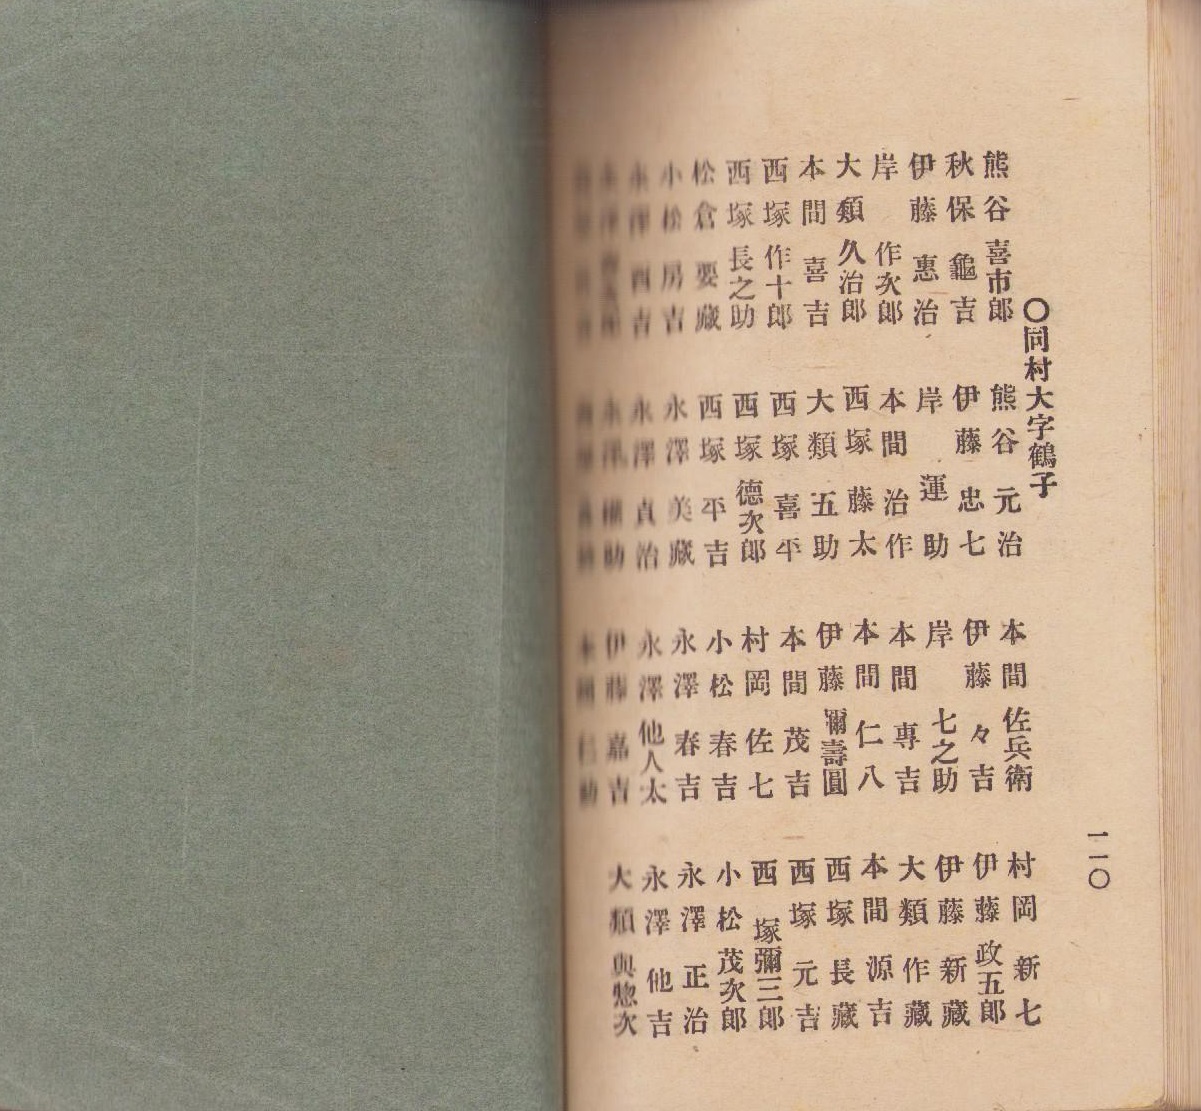 〇同村大字鶴子
熊谷喜市郎
秋保龜吉
伊藤惠治
岸作次郎
大類久治郎
本間喜吉
西塚作十郎
西塚長之助
松倉要藏
小松房吉
永澤酉吉
熊谷元治
伊藤忠七
岸運助
本間治作
西塚藤太
大類五助
西塚喜平
西塚德次郎
西塚平吉
永澤美藏
永澤貞治
本間佐兵衛
伊藤々吉
岸七之助
本間專吉
本間仁八
伊藤彌壽圓
本間茂吉
村岡佐七
小松春吉
永澤春吉
永澤他人太
伊藤嘉吉
村岡新七
伊藤政五郎
伊藤新藏
大類作藏
本間源吉
西塚長藏
西塚元吉
西塚彌三郎
小松茂次郎
永澤正治
永澤他吉
大類與惣次
一一〇